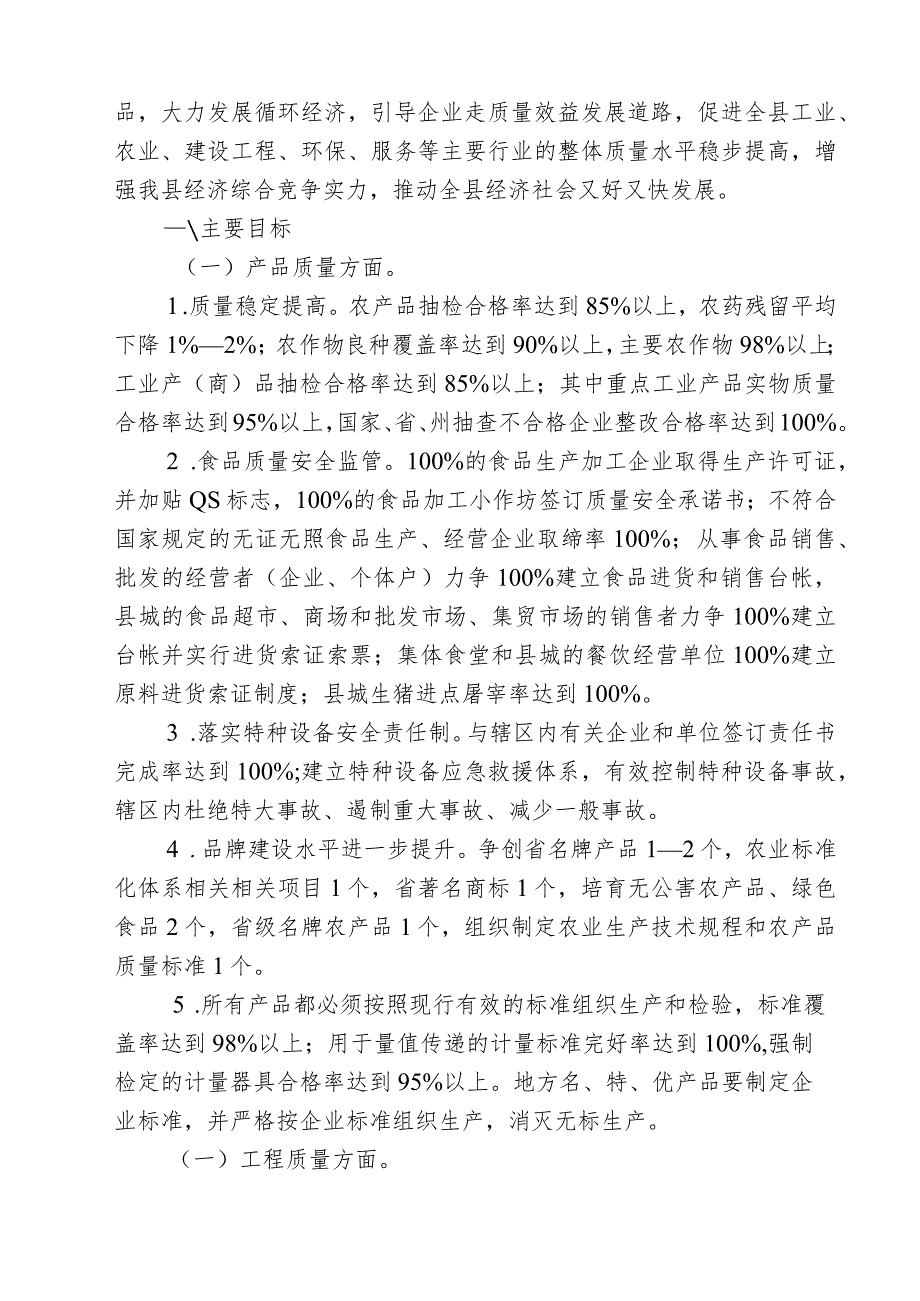 品，大力发展循环经济，引导企业走质量效益发展道路，促进全县工业、
农业、建设工程、环保、服务等主要行业的整体质量水平稳步提高，增
强我县经济综合竞争实力，推动全县经济社会又好又快发展。
—\主要目标
（一）产品质量方面。
1.质量稳定提高。农产品抽检合格率达到85%以上，农药残留平均
下降1%—2%；农作物良种覆盖率达到90%以上，主要农作物98%以上；
工业产（商）品抽检合格率达到85%以上；其中重点工业产品实物质量
合格率达到95%以上，国家、省、州抽查不合格企业整改合格率达到100%。
2 .食品质量安全监管。100%的食品生产加工企业取得生产许可证，
并加贴QS标志，100%的食品加工小作坊签订质量安全承诺书；不符合
国家规定的无证无照食品生产、经营企业取缔率100%；从事食品销售、
批发的经营者（企业、个体户）力争100%建立食品进货和销售台帐，
县城的食品超市、商场和批发市场、集贸市场的销售者力争100%建立
台帐并实行进货索证索票；集体食堂和县城的餐饮经营单位100%建立
原料进货索证制度；县城生猪进点屠宰率达到100%。
3 .落实特种设备安全责任制。与辖区内有关企业和单位签订责任书
完成率达到100%;建立特种设备应急救援体系，有效控制特种设备事故，
辖区内杜绝特大事故、遏制重大事故、减少一般事故。
4 .品牌建设水平进一步提升。争创省名牌产品1—2个，农业标准
化体系相关相关项目1个，省著名商标1个，培育无公害农产品、绿色
食品2个，省级名牌农产品1个，组织制定农业生产技术规程和农产品
质量标准1个。
5 .所有产品都必须按照现行有效的标准组织生产和检验，标准覆
盖率达到98%以上；用于量值传递的计量标准完好率达到100%,强制
检定的计量器具合格率达到95%以上。地方名、特、优产品要制定企
业标准，并严格按企业标准组织生产，消灭无标生产。
（一）工程质量方面。